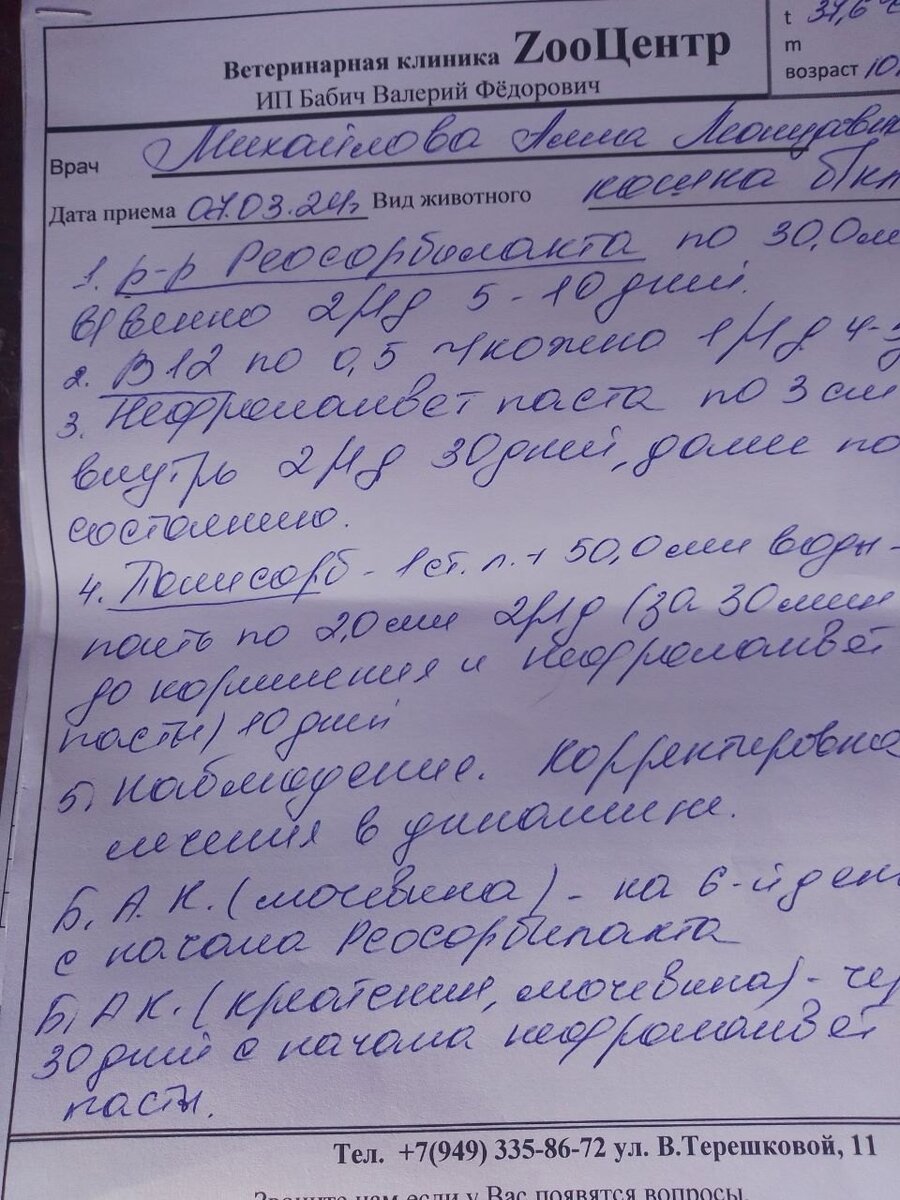 t 37,6 °C
m
возраст 10
Ветеринарная клиника ZooЦентр
ИП Бабич Валерий Фёдорович
Врач Михайлова Анна
Дата приема 07.03.24г Вид животного кошка б/кл
1. р-р Реосорбилакта по 30,0 мл
в/венно 2 р/д 5-10 дней.
2. В12 по 0,5 п/кожно 1 р/д 4-5
3. Нефроламвет паста по 3 см
внутрь 2 р/д 30 дней, далее по
состоянию.
4. Полисорб - 1 ст. л. + 50,0 мл воды -
поить по 2,0 мл 2 р/д (за 30 мин
до кормления и нефроламвет
пасты) 10 дней
5. Наблюдение. Корректировка
лечения в динамике.
Б. А. К. (мочевина) - на 6-й ден
с начала Реосорбилакта
Б. А К. (креатенин, мочевина) - че
30 дней с начала нефроламвет
пасты.
Тел. +7(949) 335-86-72 ул. В.Терешковой, 11
Звоните нам если у Вас появятся вопросы.